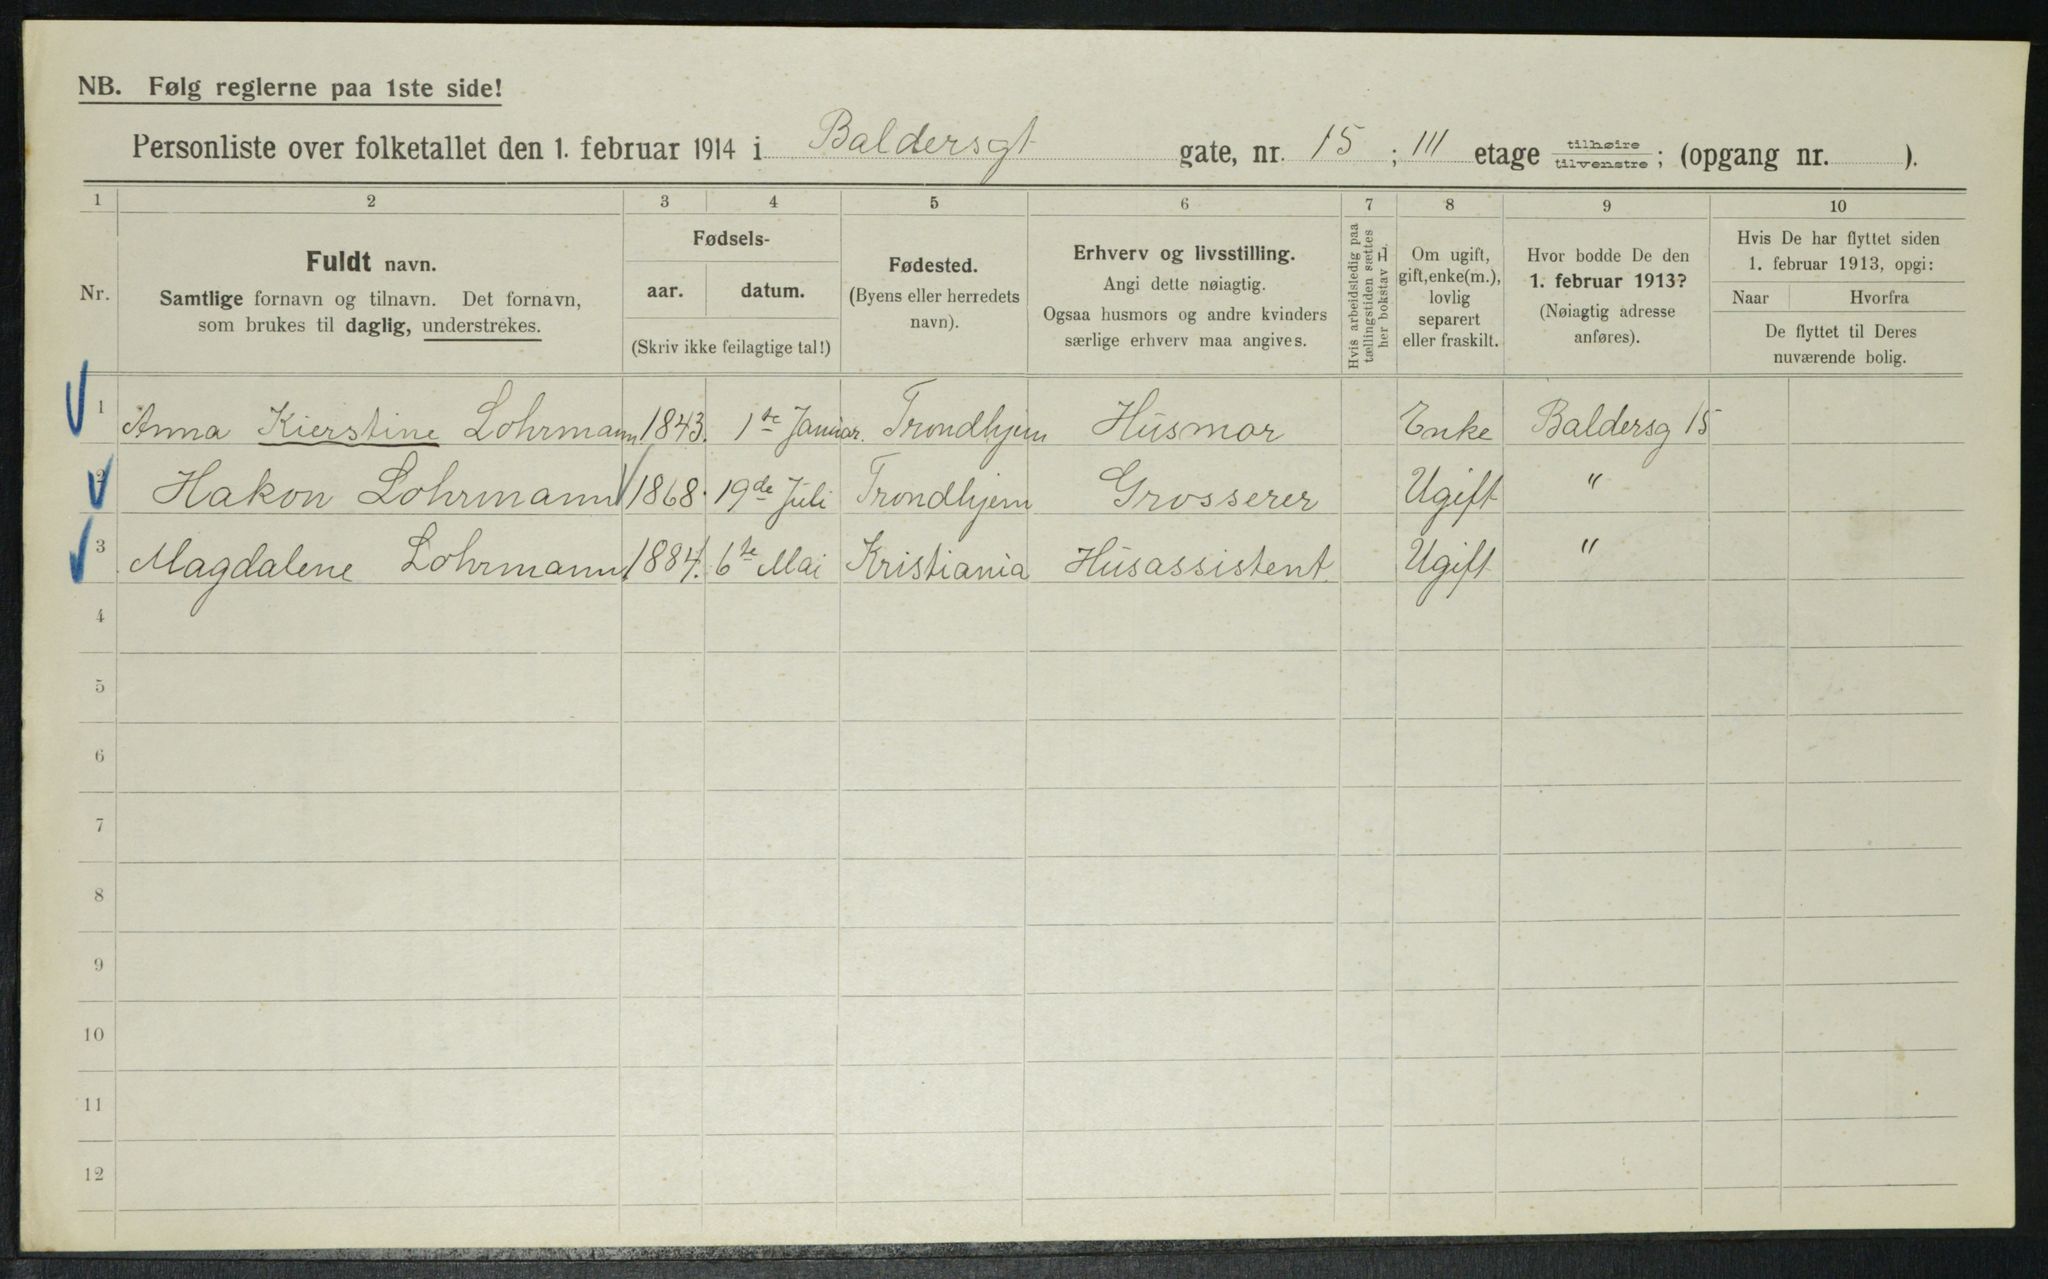 NB. Følg reglerne paa 1ste side!
Personliste over folketallet den 1. februar 1914 i Baldersgt gate, nr. 15 ; III etage tilhøire tilvenstre ; (opgang nr. ).
1 2 3 4 5 6 7 8 9 10
Nr.
Fuldt navn.
Samtlige fornavn og tilnavn. Det fornavn,
som brukes til daglig, understrekes.
Fødsels-
aar. datum.
(Skriv ikke feilagtige tal!)
Fødested.
(Byens eller herredets
navn).
Erhverv og livsstilling.
Angi dette nøiagtig.
Ogsaa husmors og andre kvinders
særlige erhverv maa angives.
Hvis arbeidsledig paa
tællingstiden sættes
her bokstav L.
Om ugift,
gift, enke(m.),
lovlig
separert
eller fraskilt.
Hvor bodde De den
1. februar 1913?
(Nøiagtig adresse
anføres).
Hvis De har flyttet siden
1. februar 1913, opgi:
Naar Hvorfra
De flyttet til Deres
nuværende bolig.
1 Anna Kierstine Lohrmann 1843. 1ste Januar. Trondhjem Husmor Enke Baldersg 15
2 Hakon Lohrmann 1868. 19de Juli Trondhjem Grosserer Ugift "
3 Magdalene Lohrmann 1884. 6te Mai Kristiania Husassistent Ugift "
4
5
6
7
8
9
10
11
12